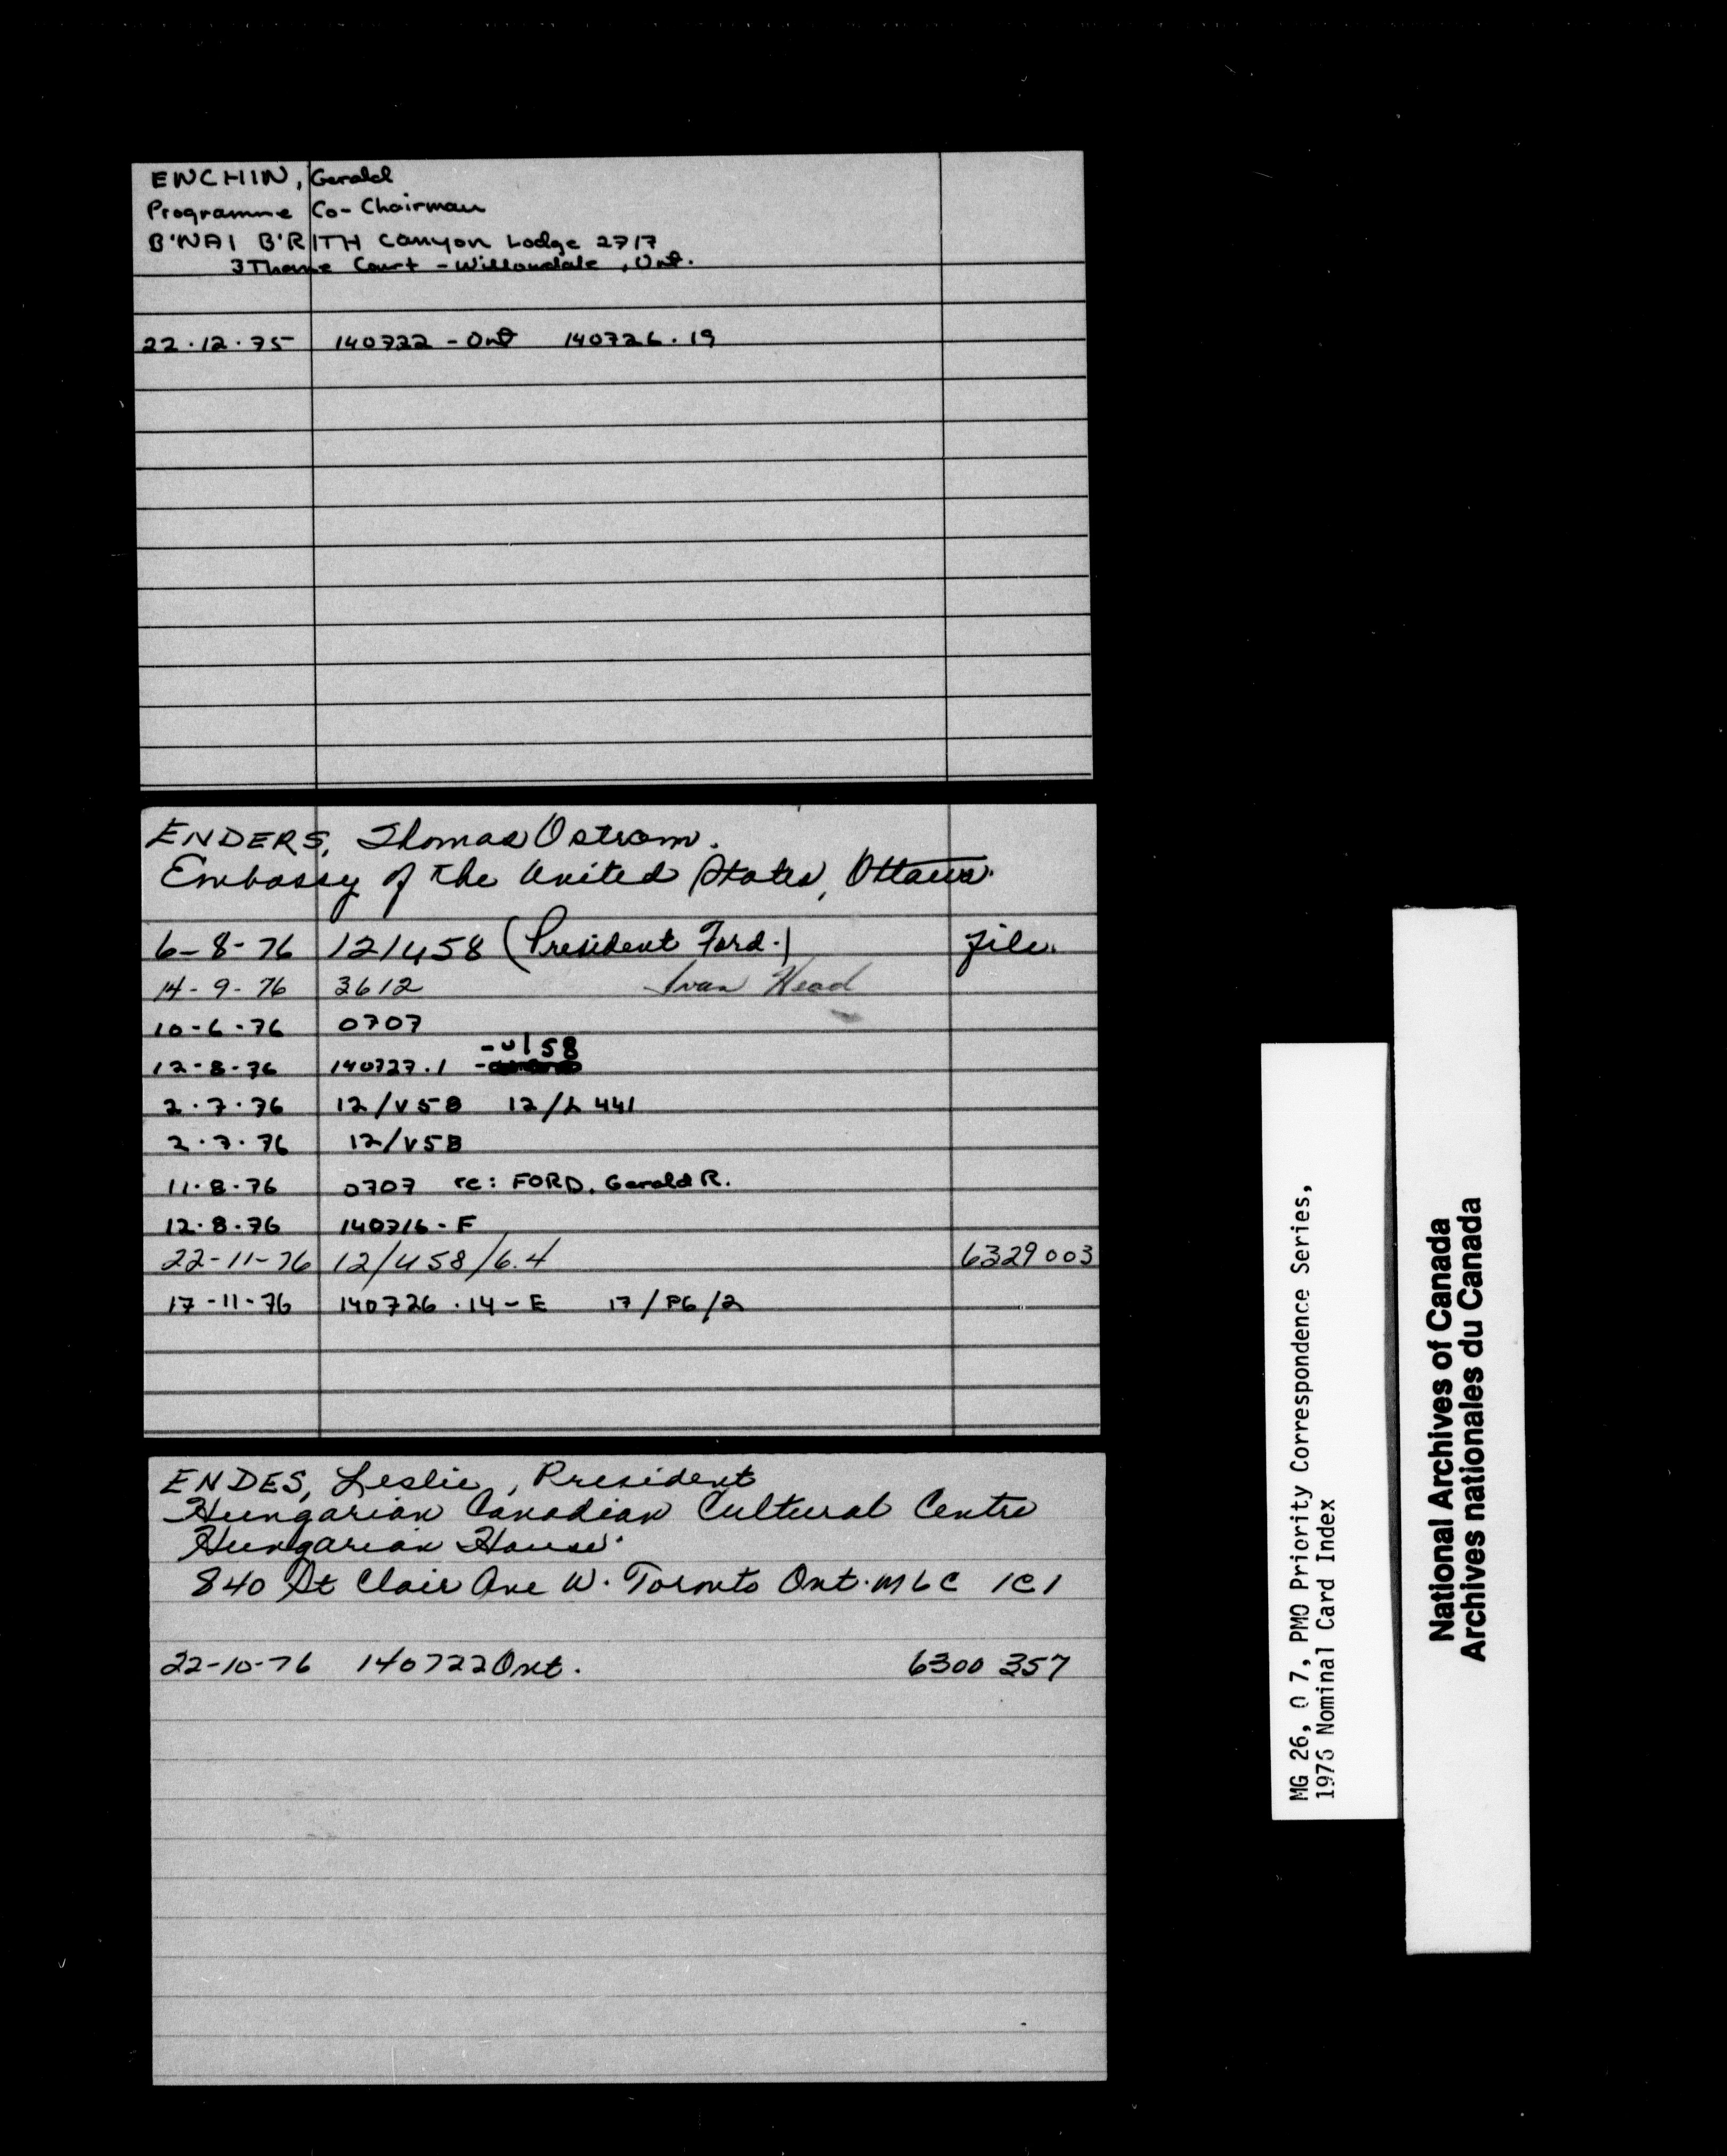 ENCHIN, Gerald
Programme Co-Chairman
B'NAI B'RITH Canyon Lodge 2717
3 Thorne Court - Willowdale, Ont.
22.12.75 140722 - Ont 140726.19
ENDERS, Thomas Ostrom.
Embassy of the United States, Ottawa.
6-8-76 12/U58 (President Ford.) file.
14-9-76 3612 Ivan Head
10-6-76 0707
-U158
12-8-76 140727.1
2.7.76 12/V58 12/L441
2.7.76 12/V58
11.8.76 0707 re: FORD, Gerald R.
12.8.76 140716-F
22-11-76 12/U58/6.4 6329003
17-11-76 140726.14-E 17/P6/2
ENDES, Leslie, President
Hungarian Canadian Cultural Centre
Hungarian House.
840 St Clair Ave W. Toronto Ont. M6C 1C1
22-10-76 140722 Ont. 6300 357
MG 26, O 7, PMO Priority Correspondence Series,
1976 Nominal Card Index
National Archives of Canada
Archives nationales du Canada